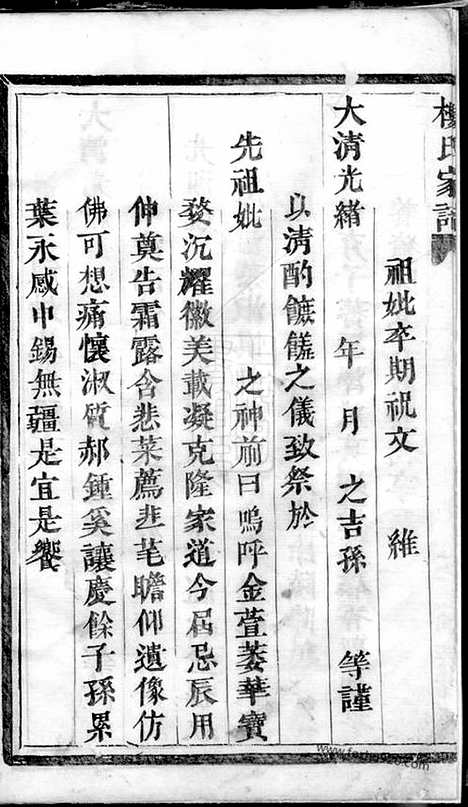 楼氏家譜
祖妣卒期祝文　維
大清光緒　年　月　之吉孫　等謹
以清酌饙饈之儀致祭於
先祖妣　之神前曰嗚呼金萱萎華寶
婺沉耀徽美載凝克隆家道今屆忌辰用
伸奠告霜露含悲菜薦韭芼瞻仰遺像仿
佛可想痛懷淑質郝鍾奚讓慶餘子孫累
葉永感申錫無疆是宜是饗